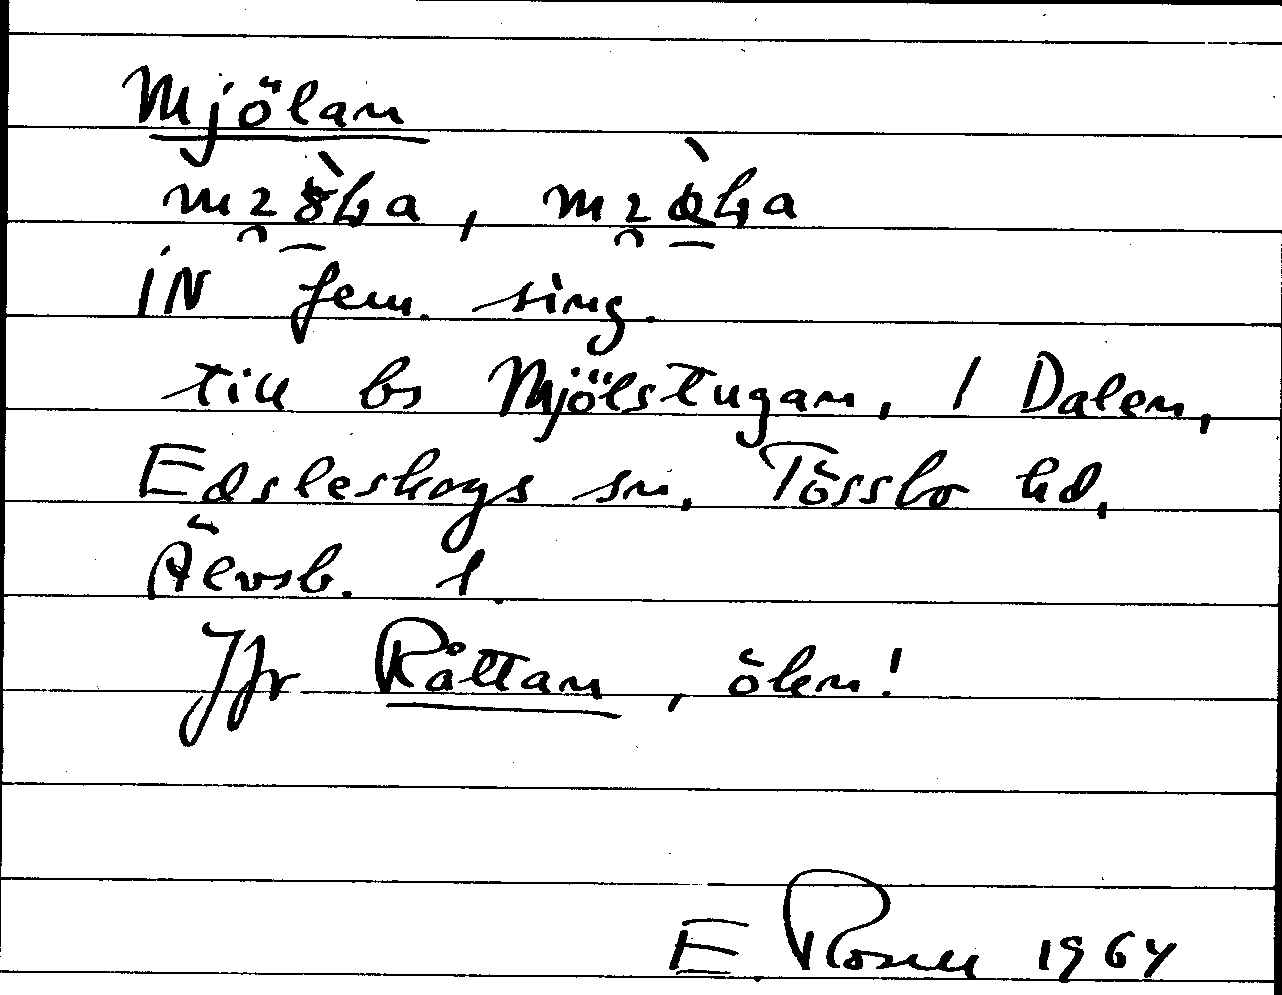 Mjölan
IN fem. sing.
till bs Mjölstugan, 1 Dalen,
Edsleskogs sn, Tössbo hd,
Älvsb. l.
Jfr Råttan, öken!
E. Rosell 1964